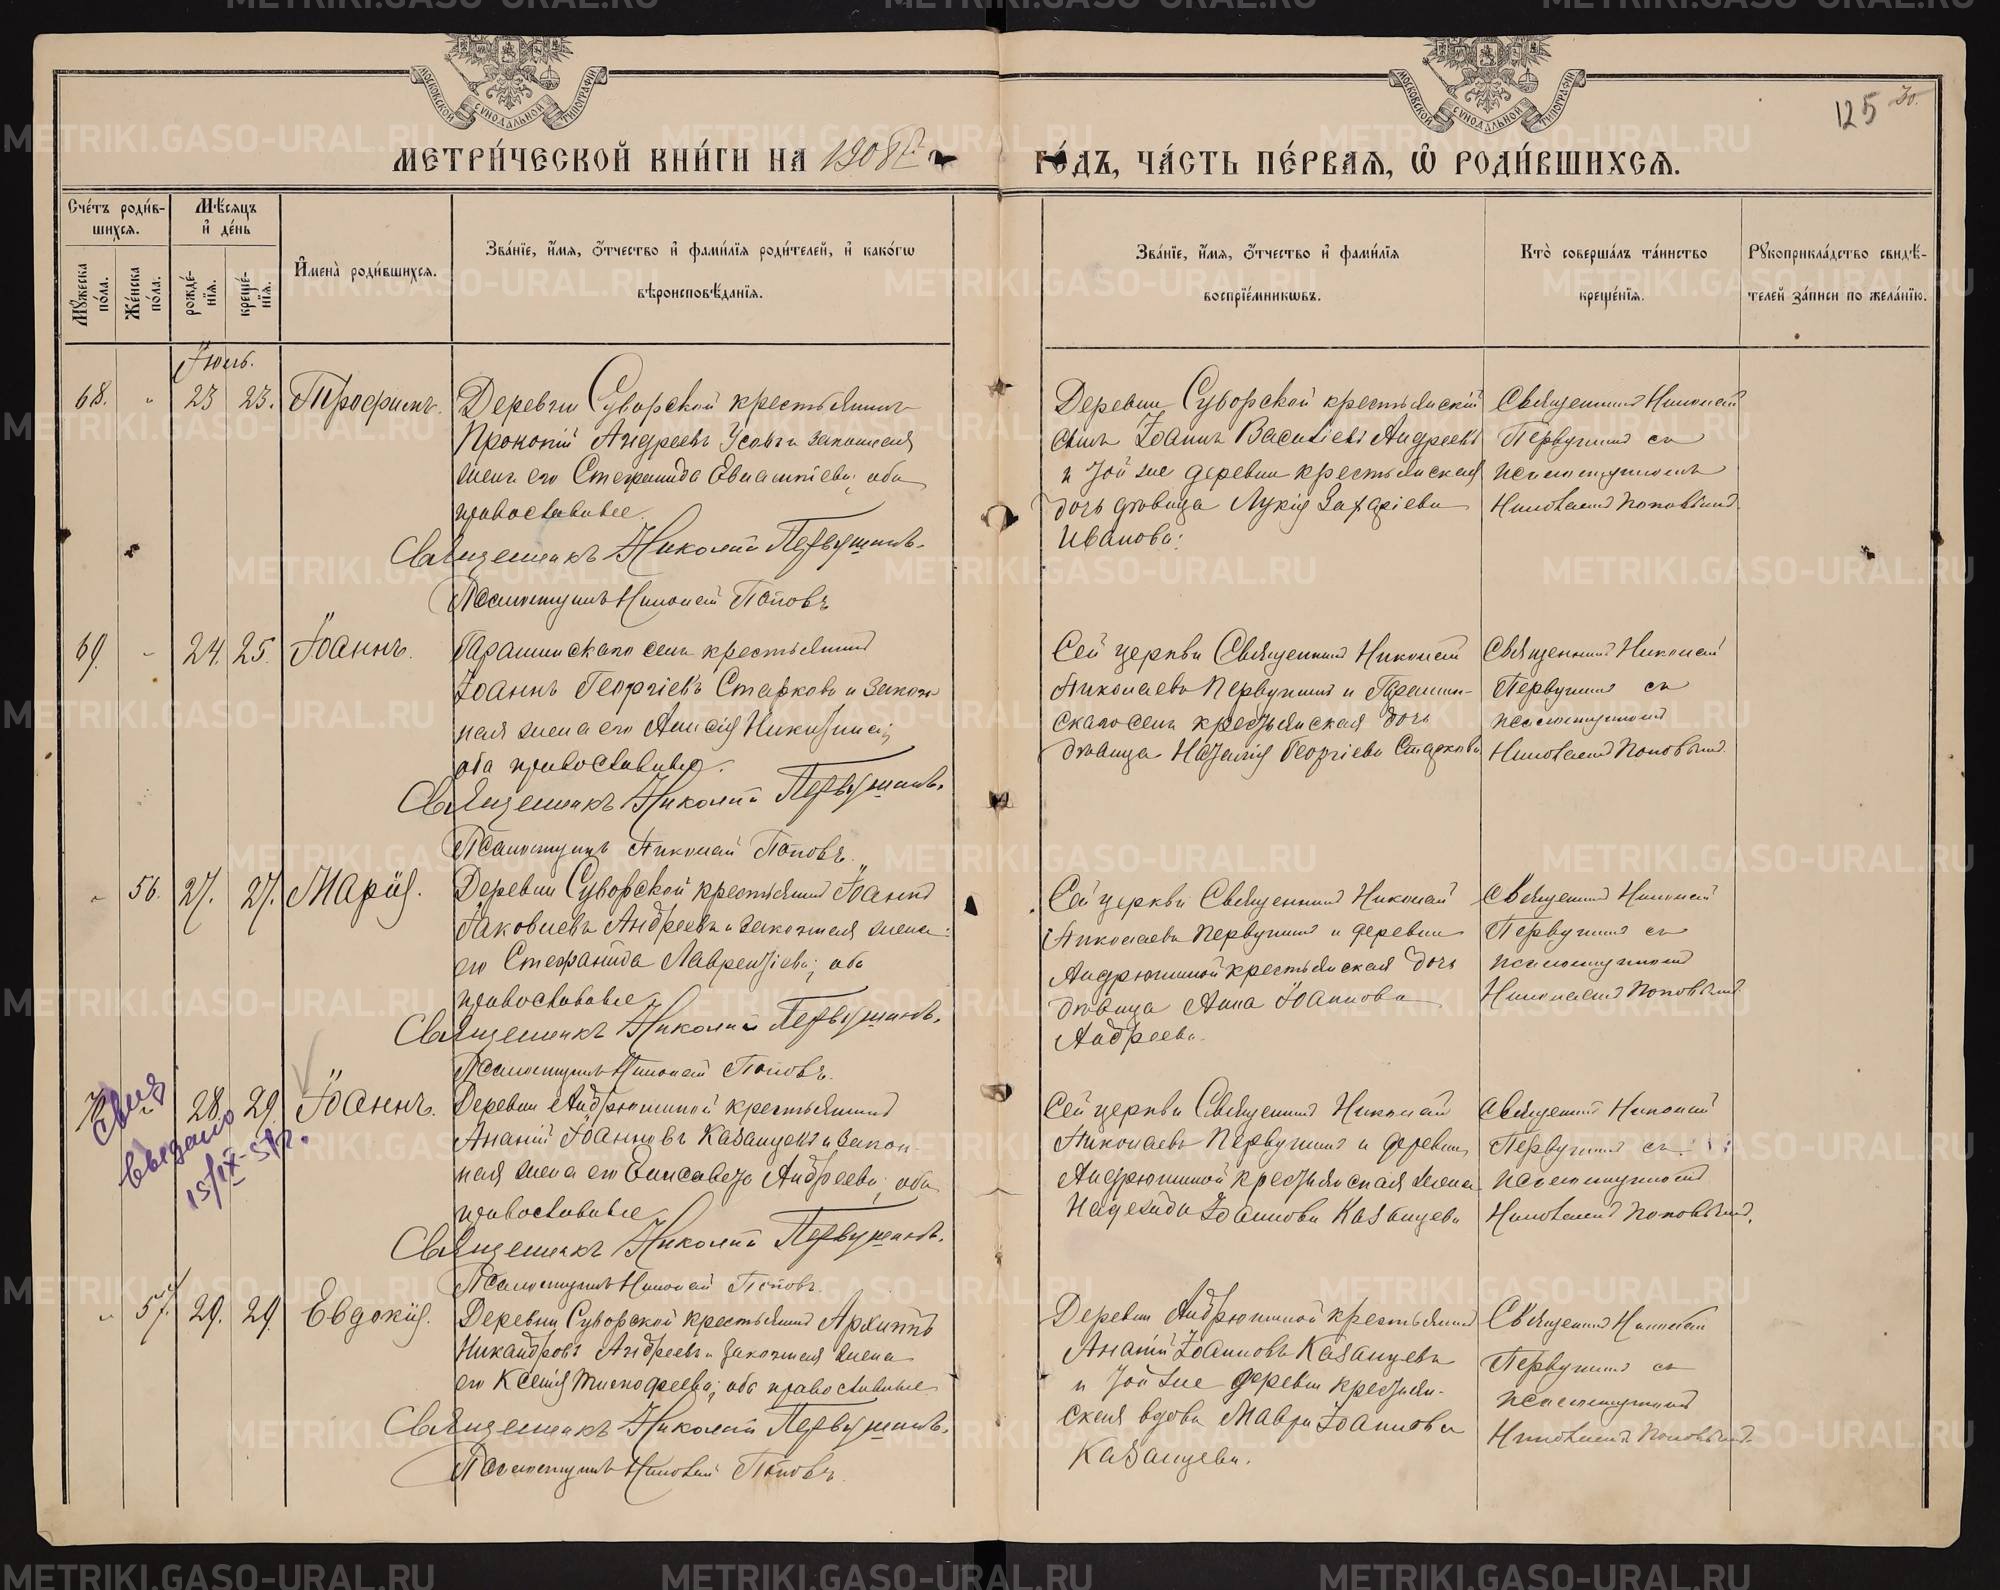 МОСКОВСКОЙ СѴНОДАЛЬНОЙ ТИПОГРАФІИ
МОСКОВСКОЙ СѴНОДАЛЬНОЙ ТИПОГРАФІИ
125
МЕТРИ́ЧЕСКОЙ КНИ́ГИ НА 1908й
ГО́ДЪ, ЧА́СТЬ ПЕ́РВАЯ, Ѡ РОДИ́ВШИХСЯ.
Сче́тъ роди́вшихся.
Мѣсяцъ и де́нь
Мꙋжеска по́ла.
Же́нска по́ла.
рожде́нїя.
креще́нїя.
Имена̀ роди́вшихся.
Зва́нїе, и́мя, о́тчество и фами́лїя роди́телей, и како́гѡ
вѣроисповѣ́данїя.
Зва́нїе, и́мя, о́тчество и фами́лїя
воспрїе́мникѡвъ.
Кто̀ соверша́лъ та́инство
креще́нїя.
Рꙋкоприкла́дство свидѣ́-
телей за́писи по жела́нїю.
Іюль.
68. 23 23. Трофимъ.
Деревни Суворской крестьянинъ
Прокопій Андреевъ Усовъ и законная
жена его Стефанида Евпатіева; оба
православные.
Священникъ Николай Первушинъ.
Псаломщикъ Николай Поповъ
Деревни Суворской крестьянскій
сынъ Іоаннъ Васильевъ Андреевъ
и той же деревни крестьянская
дочь дѣвица Лукія Захаріева
Иванова.
Священникъ Николай
Первушинъ съ
псаломщикомъ
Николаемъ Поповымъ
69. 24. 25. Іоаннъ.
Гарашинскаго села крестьянинъ
Іоаннъ Георгіевъ Старковъ и закон-
ная жена его Анисія Никитина;
оба православные.
Священникъ Николай Первушинъ.
Псаломщикъ Николай Поповъ.
Сей церкви Священникъ Николай
Николаевъ Первушинъ и Гарашин-
скаго села крестьянская дочь
дѣвица Наталія Георгіева Старкова
Священникъ Николай
Первушинъ съ
псаломщикомъ
Николаемъ Поповымъ
56. 27. 27. Марія.
Деревни Суворской крестьянинъ Іоаннъ
Іаковлевъ Андреевъ и законная жена
его Стефанида Лаврентіева; оба
православные
Священникъ Николай Первушинъ.
Псаломщикъ Николай Поповъ.
Сей церкви Священникъ Николай
Николаевъ Первушинъ и деревни
Андрюшиной крестьянская дочь
дѣвица Анна Іоаннова
Андреева.
Священникъ Николай
Первушинъ съ
псаломщикомъ
Николаемъ Поповымъ
70. 28. 29. Іоаннъ.
выдано
15/IX-51г.
Деревни Андрюшиной крестьянинъ
Ананій Іоанновъ Казанцевъ и закон-
ная жена его Елисавета Андреева; оба
православные
Священникъ Николай Первушинъ.
Псаломщикъ Николай Поповъ.
Сей церкви Священникъ Николай
Николаевъ Первушинъ и деревни
Андрюшиной крестьянская жена
Надежда Іоаннова Казанцева
Священникъ Николай
Первушинъ съ
псаломщикомъ
Николаемъ Поповымъ.
57. 29. 29. Евдокія.
Деревни Суворской крестьянинъ Архиппъ
Никандровъ Андреевъ и законная жена
его Ксенія Тимофеева; оба православные
Священникъ Николай Первушинъ.
Псаломщикъ Николай Поповъ.
Деревни Андрюшиной крестьянинъ
Ананій Іоанновъ Казанцевъ
и той же деревни крестьян-
ская вдова Мавра Іоаннова
Казанцева.
Священникъ Николай
Первушинъ съ
псаломщикомъ
Николаемъ Поповымъ.
METRIKI.GASO-URAL.RU